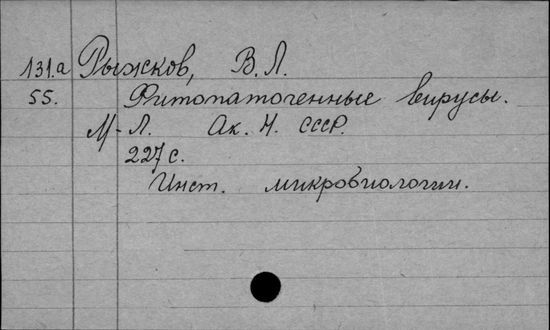 131.а Рыжков, В.Л.
55. Фитопатогенные вирусы.
М-Л. Ак. Н. СССР.
227 с.
Инст. микробиологии.